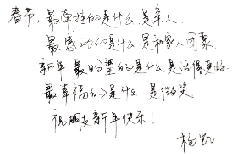 春节，最牵挂的是什么 是亲人
最感动的是什么 是和家人团聚
新年 最盼望的是什么 是活得更好
最幸福的是什么 是微笑
祝福您新年快乐